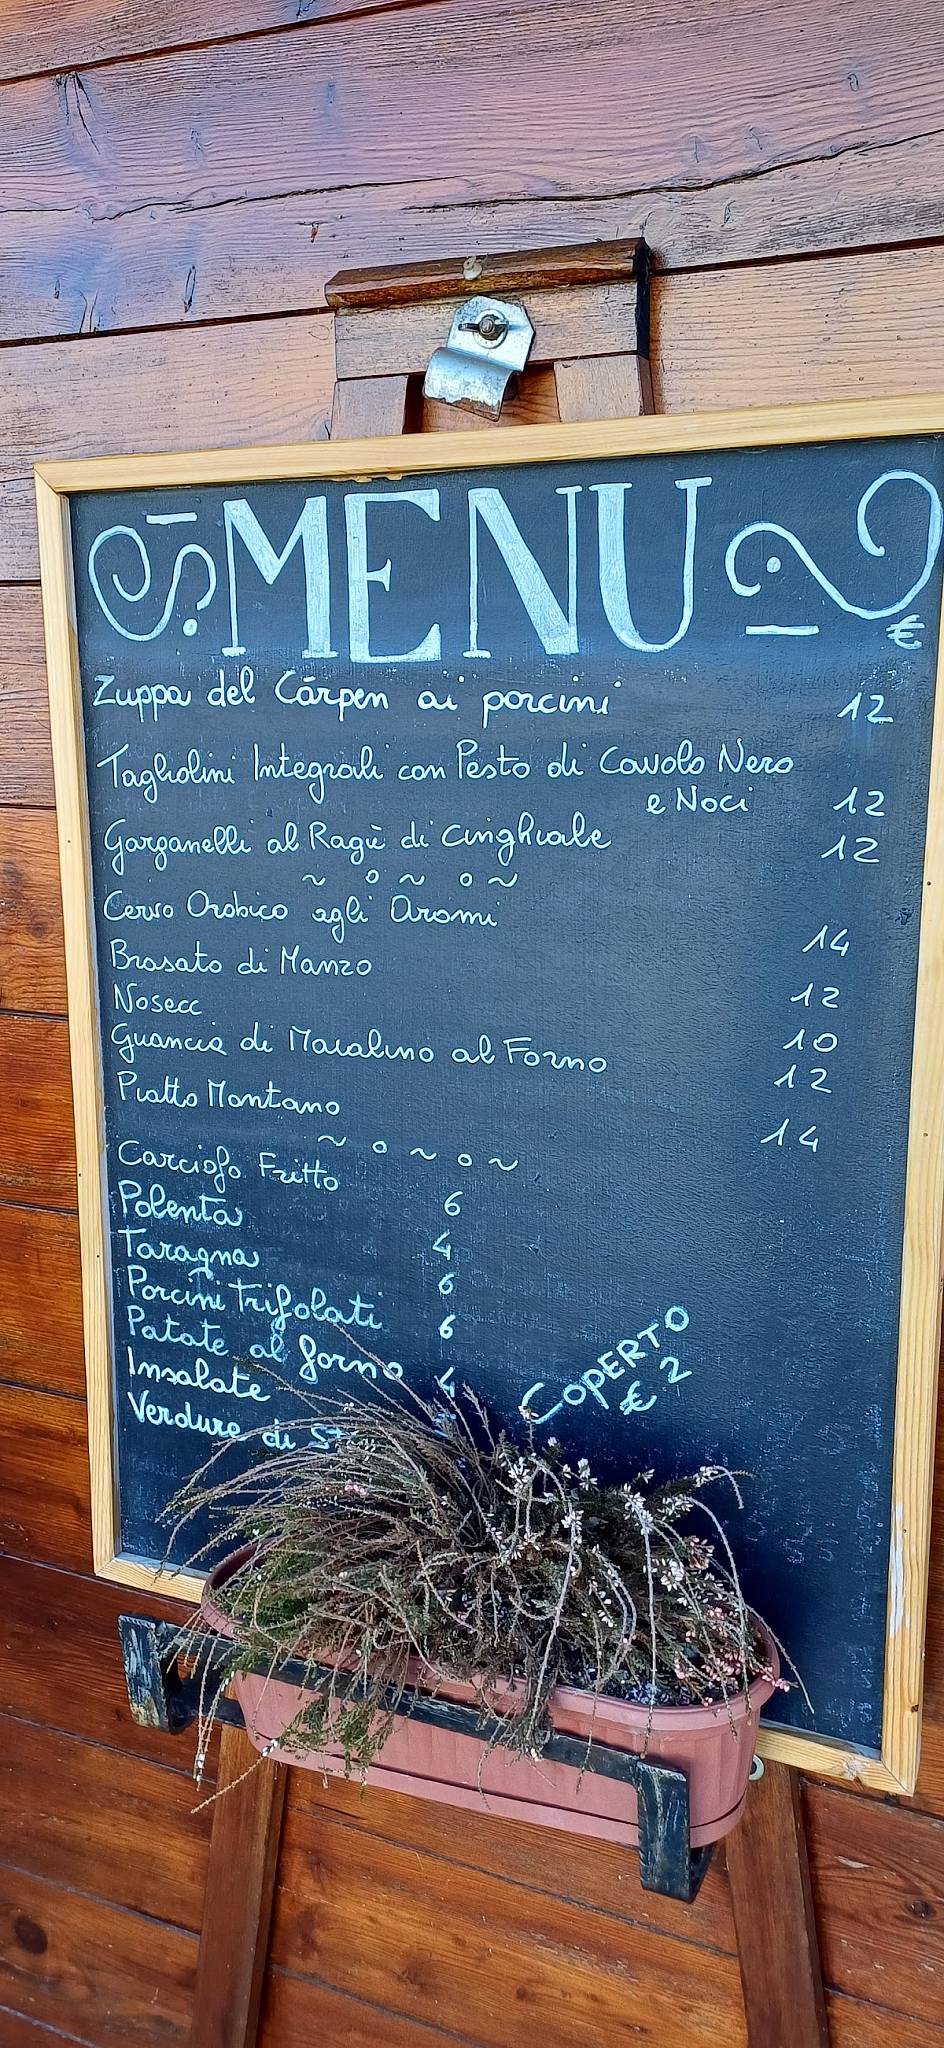 MENU
€
Zuppa del Cārpen ai porcini 12
Tagliolini Integrali con Pesto di Cavolo Nero
e Noci 12
Garganelli al Ragù di Cinghiale 12
~ o ~ o ~
Cervo Orobico agli Aromi 14
Brasato di Manzo 12
Nosecc 10
Guancia di Maialino al Forno 12
Piatto Montano 14
~ o ~ o ~
Carciofo Fritto 6
Polenta 4
Taragna 6
Porcini Trifolati 6
Patate al forno 4
Insalate
Verdure di
COPERTO
€ 2